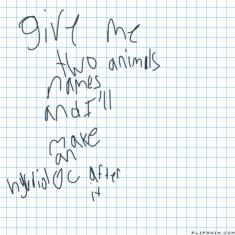 give me
two animals
names
and I'll
make
an
hybrid OC after
it
FLIPANIM.COM